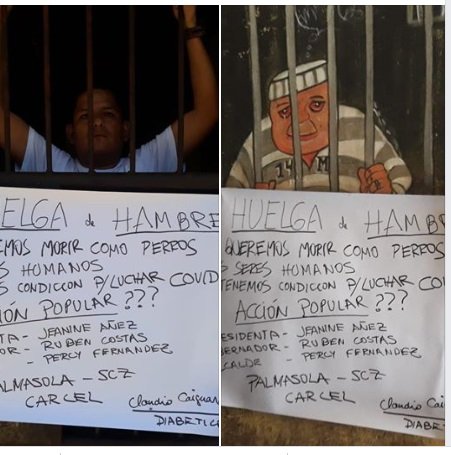 ELGA de HAMBRE
EMOS MORIR COMO PERROS
S HUMANOS
S CONDICCION P/LUCHAR COVID
IÓN POPULAR ???
TA - JEANINE AÑEZ
DOR - RUBEN COSTAS
- PERCY FERNANDEZ
ALMASOLA - SCZ
CARCEL
Claudio Caiguar
DIABETIC
14 M
HUELGA de HAMBR
QUEREMOS MORIR COMO PERROS
SERES HUMANOS
TENEMOS CONDICCION P/LUCHAR CO
ACCIÓN POPULAR ???
ESIDENTA - JEANINE AÑEZ
BERNADOR - RUBEN COSTAS
CALDE - PERCY FERNANDEZ
PALMASOLA - SCZ
CARCEL
Claudio Cai
DIABE